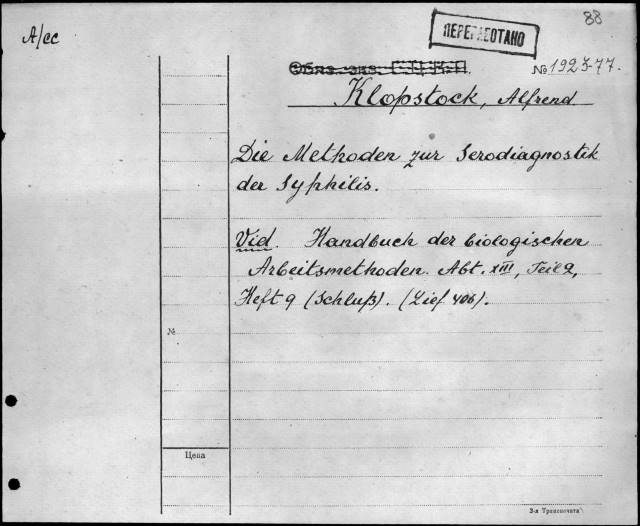 88
A/cc
ПЕРЕРАБОТАНО
Обяз. экз.
№ 1923-77.
Klopstock, Alfrend
Die Methoden zur Serodiagnostik
der Syphilis.
Vid. Handbuch der biologischen
Arbeitsmethoden. Abt. XIII, Teil 2,
Heft 9 (Schluß). (Lief 406).
№
Цена
3-я Транспечать